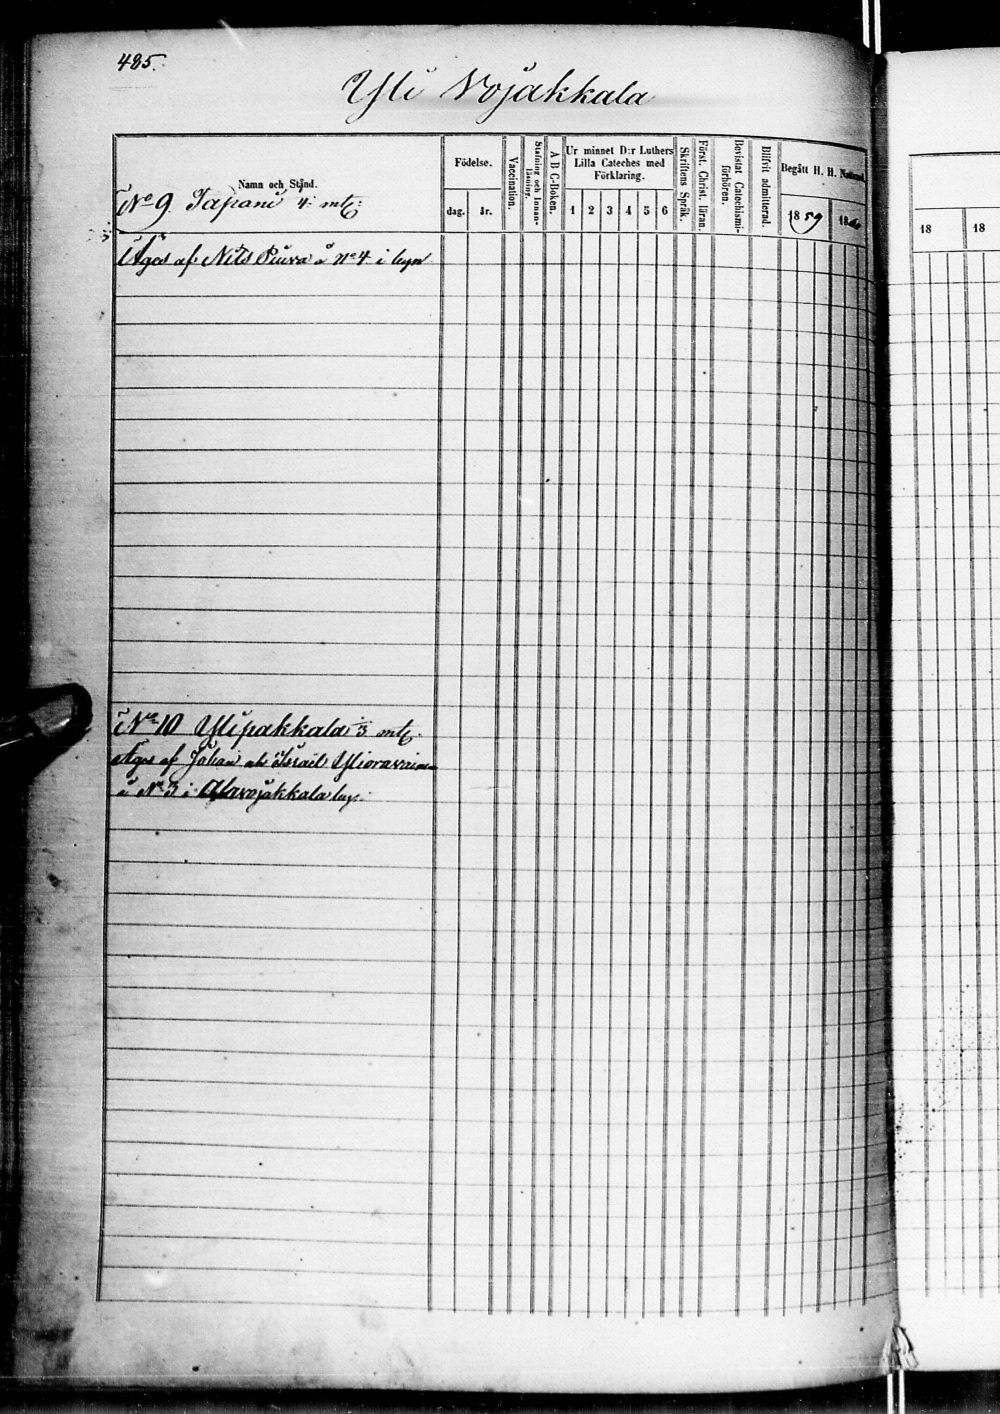 485.
Yli Vojakkala
Namn och Stånd.
Födelse.
dag.
år.
Vaccination.
Stafning och Innanläsning.
A B C-Boken.
Ur minnet D:r Luthers Lilla Cateches med Förklaring.
1 2 3 4 5 6
Skriftens Språk.
Först. Christ. läran.
Bevistat Catechismiförhören.
Blifvit admitterad.
Begått H. H. Nattvard.
1859
1860
18
18
No 9 Tapani 4: mtl:
Äges af Nils Piuva å No 4 i byn
No 10 Ylipakkala 1/3 mtl.
Äges af Johan och Israël Ylioravainen
å No 3 i Alavojakkala by.